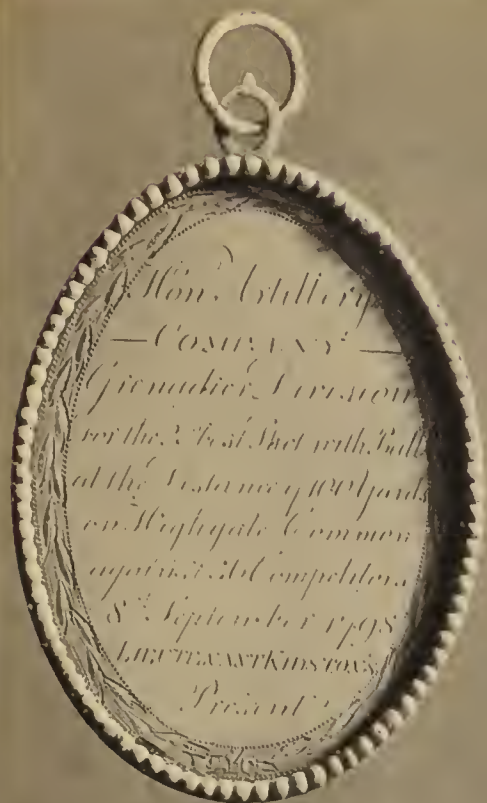 Honᵈ. Artillery
— COMPANY —
Grenadier Division
for the 2ᵈ best Shot with Ball
at the Distance of 100 Yards
on Highgate Common
against Competitors
8ᵗʰ September 1798
Present